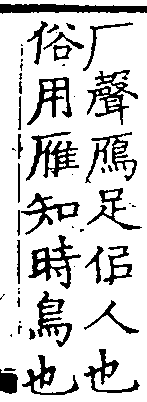 厂聲鴈足佀人也
俗用雁知時鳥也